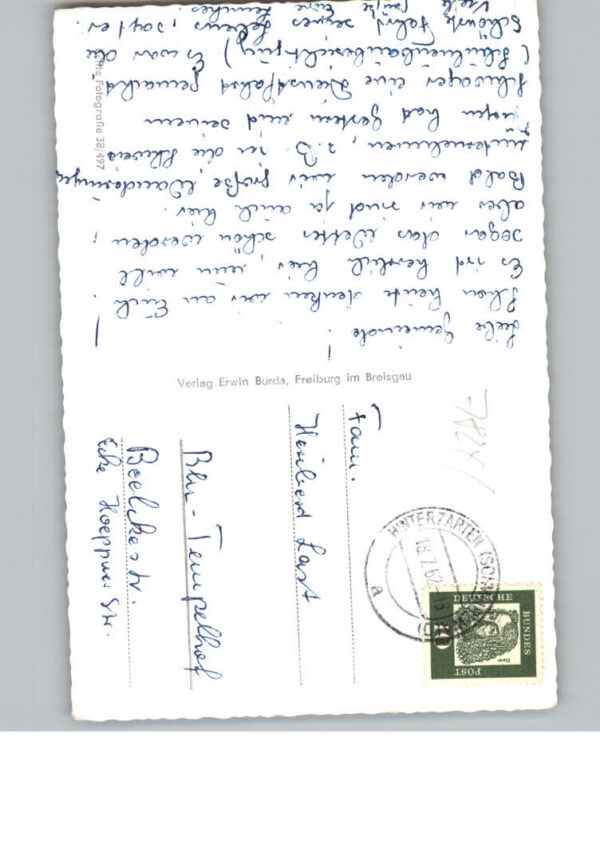 Liebe Gemeinde!
Schon heute denken wir an Euch!
Es ist herrlich hier, nun will
sogar das Wetter schön werden!
aber wir sind ja auch hier.
Bald werden wir große Wanderungen
unternehmen, z.B. in die Schweiz
hat gestern mit seinem
Schwager eine Dienstfahrt gemacht
Es war die
Schönste Fahrt seines Lebens, sagt er.
Viele Grüße Eure
Echte Fotografie 38/497
Verlag Erwin Burda, Freiburg im Breisgau
7824
Fam.
Heribert Last
Bln - Tempelhof
Boelckestr.
Ecke Hoeppner Str.
HINTERZARTEN (SCHW
18.7.62
a
DEUTSCHE
BUNDES
POST
10
Dürer